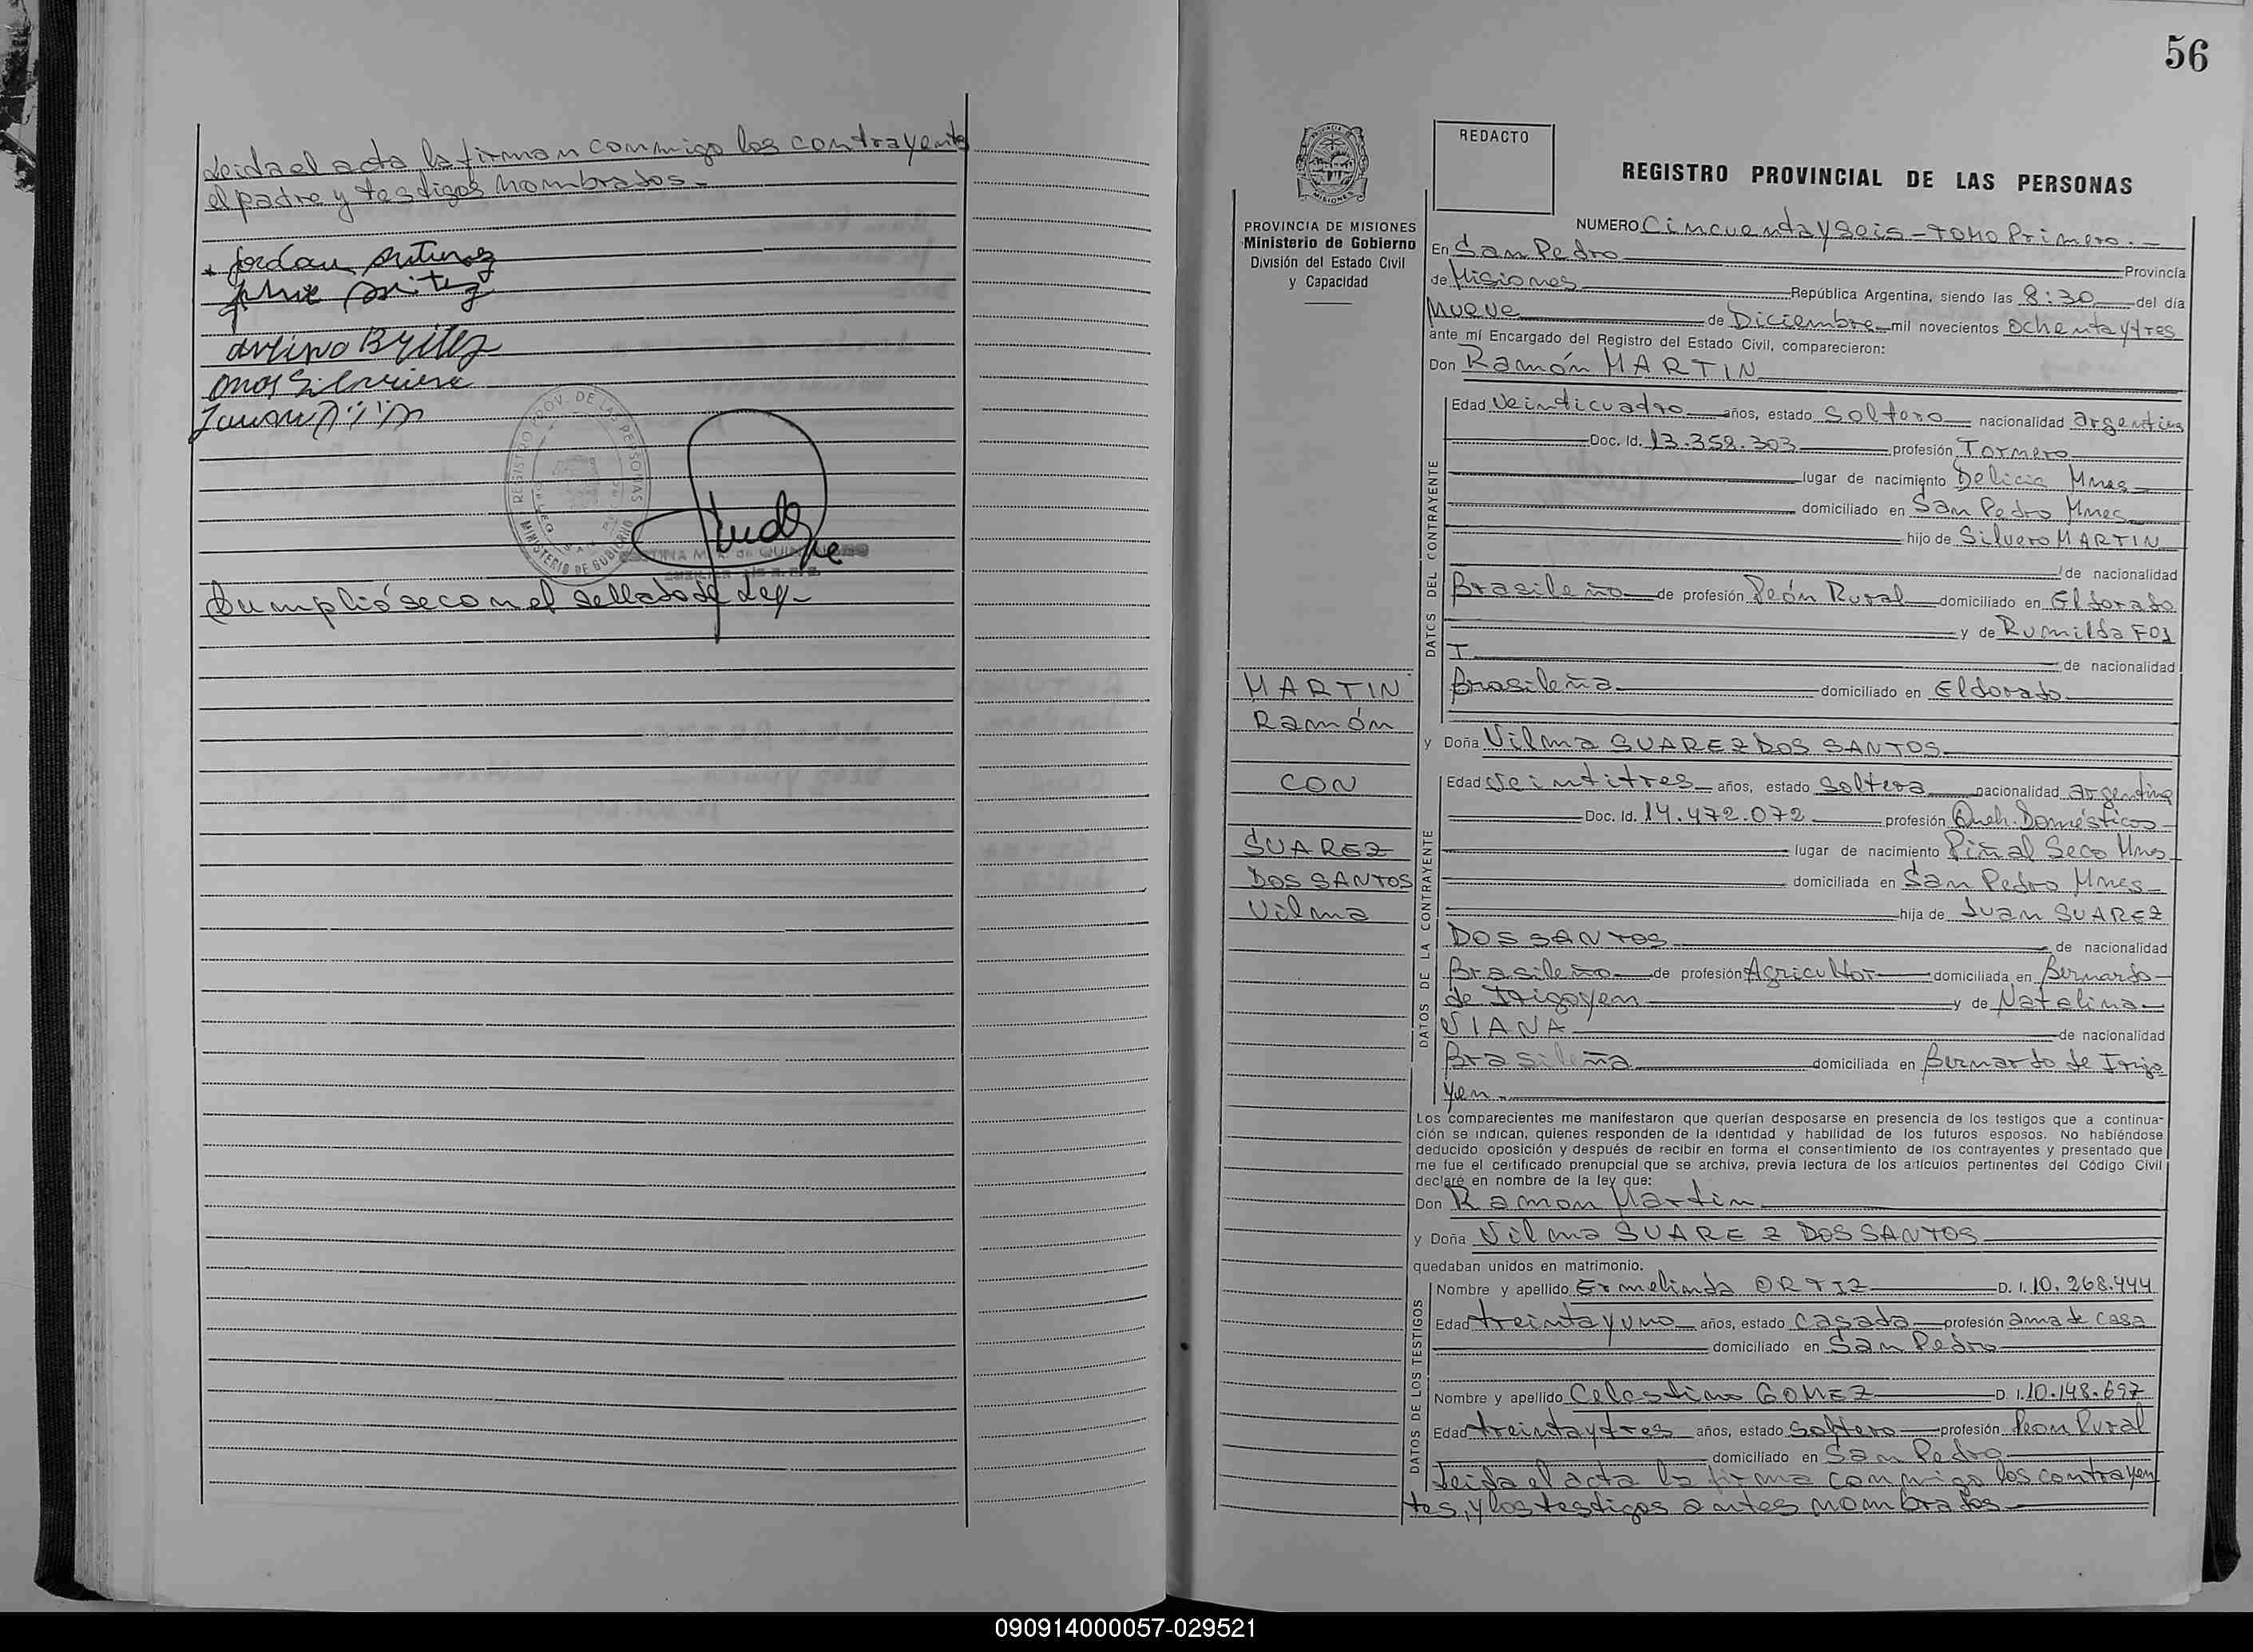 Leida el acta la firman conmigo los contrayente
el padre y testigos nombrados.-
Arturo Britez
Cumplióse con el sellado de Ley-
56
REDACTO
REGISTRO PROVINCIAL DE LAS PERSONAS
PROVINCIA DE MISIONES
Ministerio de Gobierno
División del Estado Civil
y Capacidad
NUMERO Cincuenta y Seis - TOMO Primero.-
En San Pedro Provincia
de Misiones República Argentina, siendo las 8:30 del día
Nueve de Diciembre mil novecientos ochenta y tres
ante mí Encargado del Registro del Estado Civil, comparecieron:
Don Ramón MARTIN
DATOS DEL CONTRAYENTE
Edad Veinticuatro años, estado soltero nacionalidad argentina
Doc. Id. 13.358.303 profesión Tornero
lugar de nacimiento Delicia Mnes
domiciliado en San Pedro Mnes
hijo de Silvero MARTIN
de nacionalidad
Brasileño de profesión Peón Rural domiciliado en Eldorado
y de Romilda FOS
T de nacionalidad
Brasileña domiciliado en Eldorado
MARTIN
Ramón
CON
SUAREZ
DOS SANTOS
Vilma
y Doña Vilma SUAREZ DOS SANTOS
DATOS DE LA CONTRAYENTE
Edad Veintitres años, estado Soltera nacionalidad argentina
Doc. Id. 14.472.072 profesión Queh. Domésticos
lugar de nacimiento Piñal Seco Mnes
domiciliada en San Pedro Mnes
hija de Juan SUAREZ
DOS SANTOS de nacionalidad
Brasileño de profesión Agricultor domiciliada en Bernardo
de Irigoyen y de Natalina
VIANA de nacionalidad
Brasileña domiciliada en Bernardo de Irigo
yen.-
Los comparecientes me manifestaron que querían desposarse en presencia de los testigos que a continua-
ción se indican, quienes responden de la identidad y habilidad de los futuros esposos. No habiéndose
deducido oposición y después de recibir en forma el consentimiento de los contrayentes y presentado que
me fue el certificado prenupcial que se archiva, previa lectura de los artículos pertinentes del Código Civil
declaré en nombre de la ley que:
Don Ramon Martin
y Doña Vilma SUAREZ DOS SANTOS
quedaban unidos en matrimonio.
DATOS DE LOS TESTIGOS
Nombre y apellido Ermelinda ORTIZ D. I. 10.268.444
Edad treinta y uno años, estado casada profesión ama de casa
domiciliado en San Pedro
Nombre y apellido Celestino GOMEZ D. I. 10.148.697
Edad treinta y tres años, estado soltero profesión Peon Rural
domiciliado en San Pedro
Leida el acta la firma conmigo los contrayen
tes, y los testigos antes nombrados
090914000057-029521